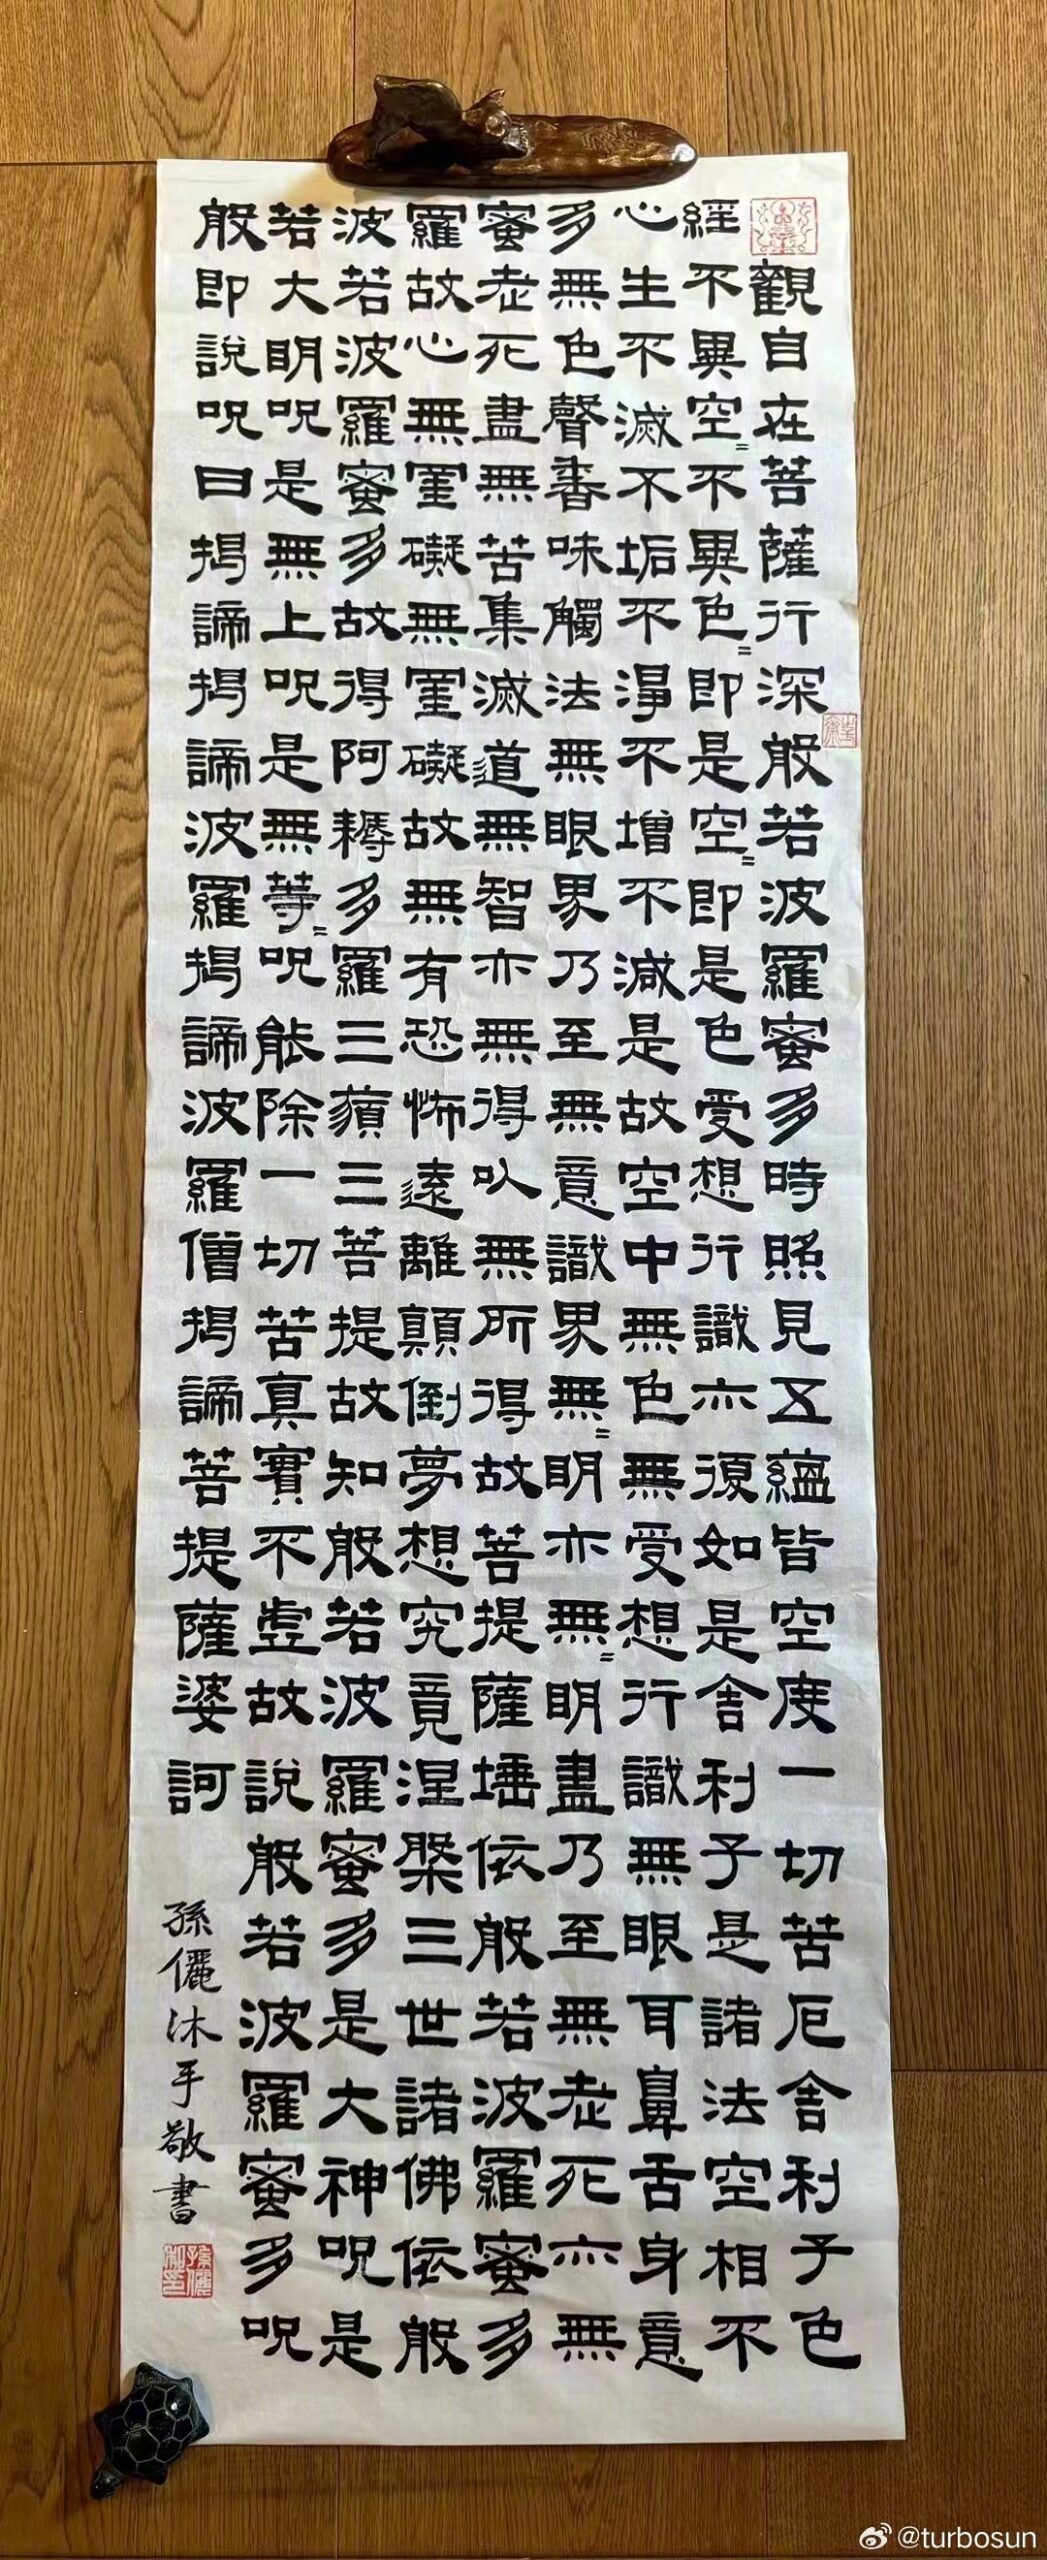 般若波羅蜜多心經
觀自在菩薩行深般若波羅蜜多時照見五蘊皆空度一切苦厄舍利子色
不異空〻不異色〻即是空〻即是色受想行識亦復如是舍利子是諸法空相不
生不滅不垢不淨不增不減是故空中無色無受想行識無眼耳鼻舌身意
無色聲香味觸法無眼界乃至無意識界無〻明亦無〻明盡乃至無老死亦無
老死盡無苦集滅道無智亦無得以無所得故菩提薩埵依般若波羅蜜多
故心無罣礙無罣礙故無有恐怖遠離顛倒夢想究竟涅槃三世諸佛依般
若波羅蜜多故得阿耨多羅三藐三菩提故知般若波羅蜜多是大神呪是
大明呪是無上呪是無等〻呪能除一切苦真實不虛故說般若波羅蜜多呪
即說呪曰揭諦揭諦波羅揭諦波羅僧揭諦菩提薩婆訶
孫儷沐手敬書
@turbosun